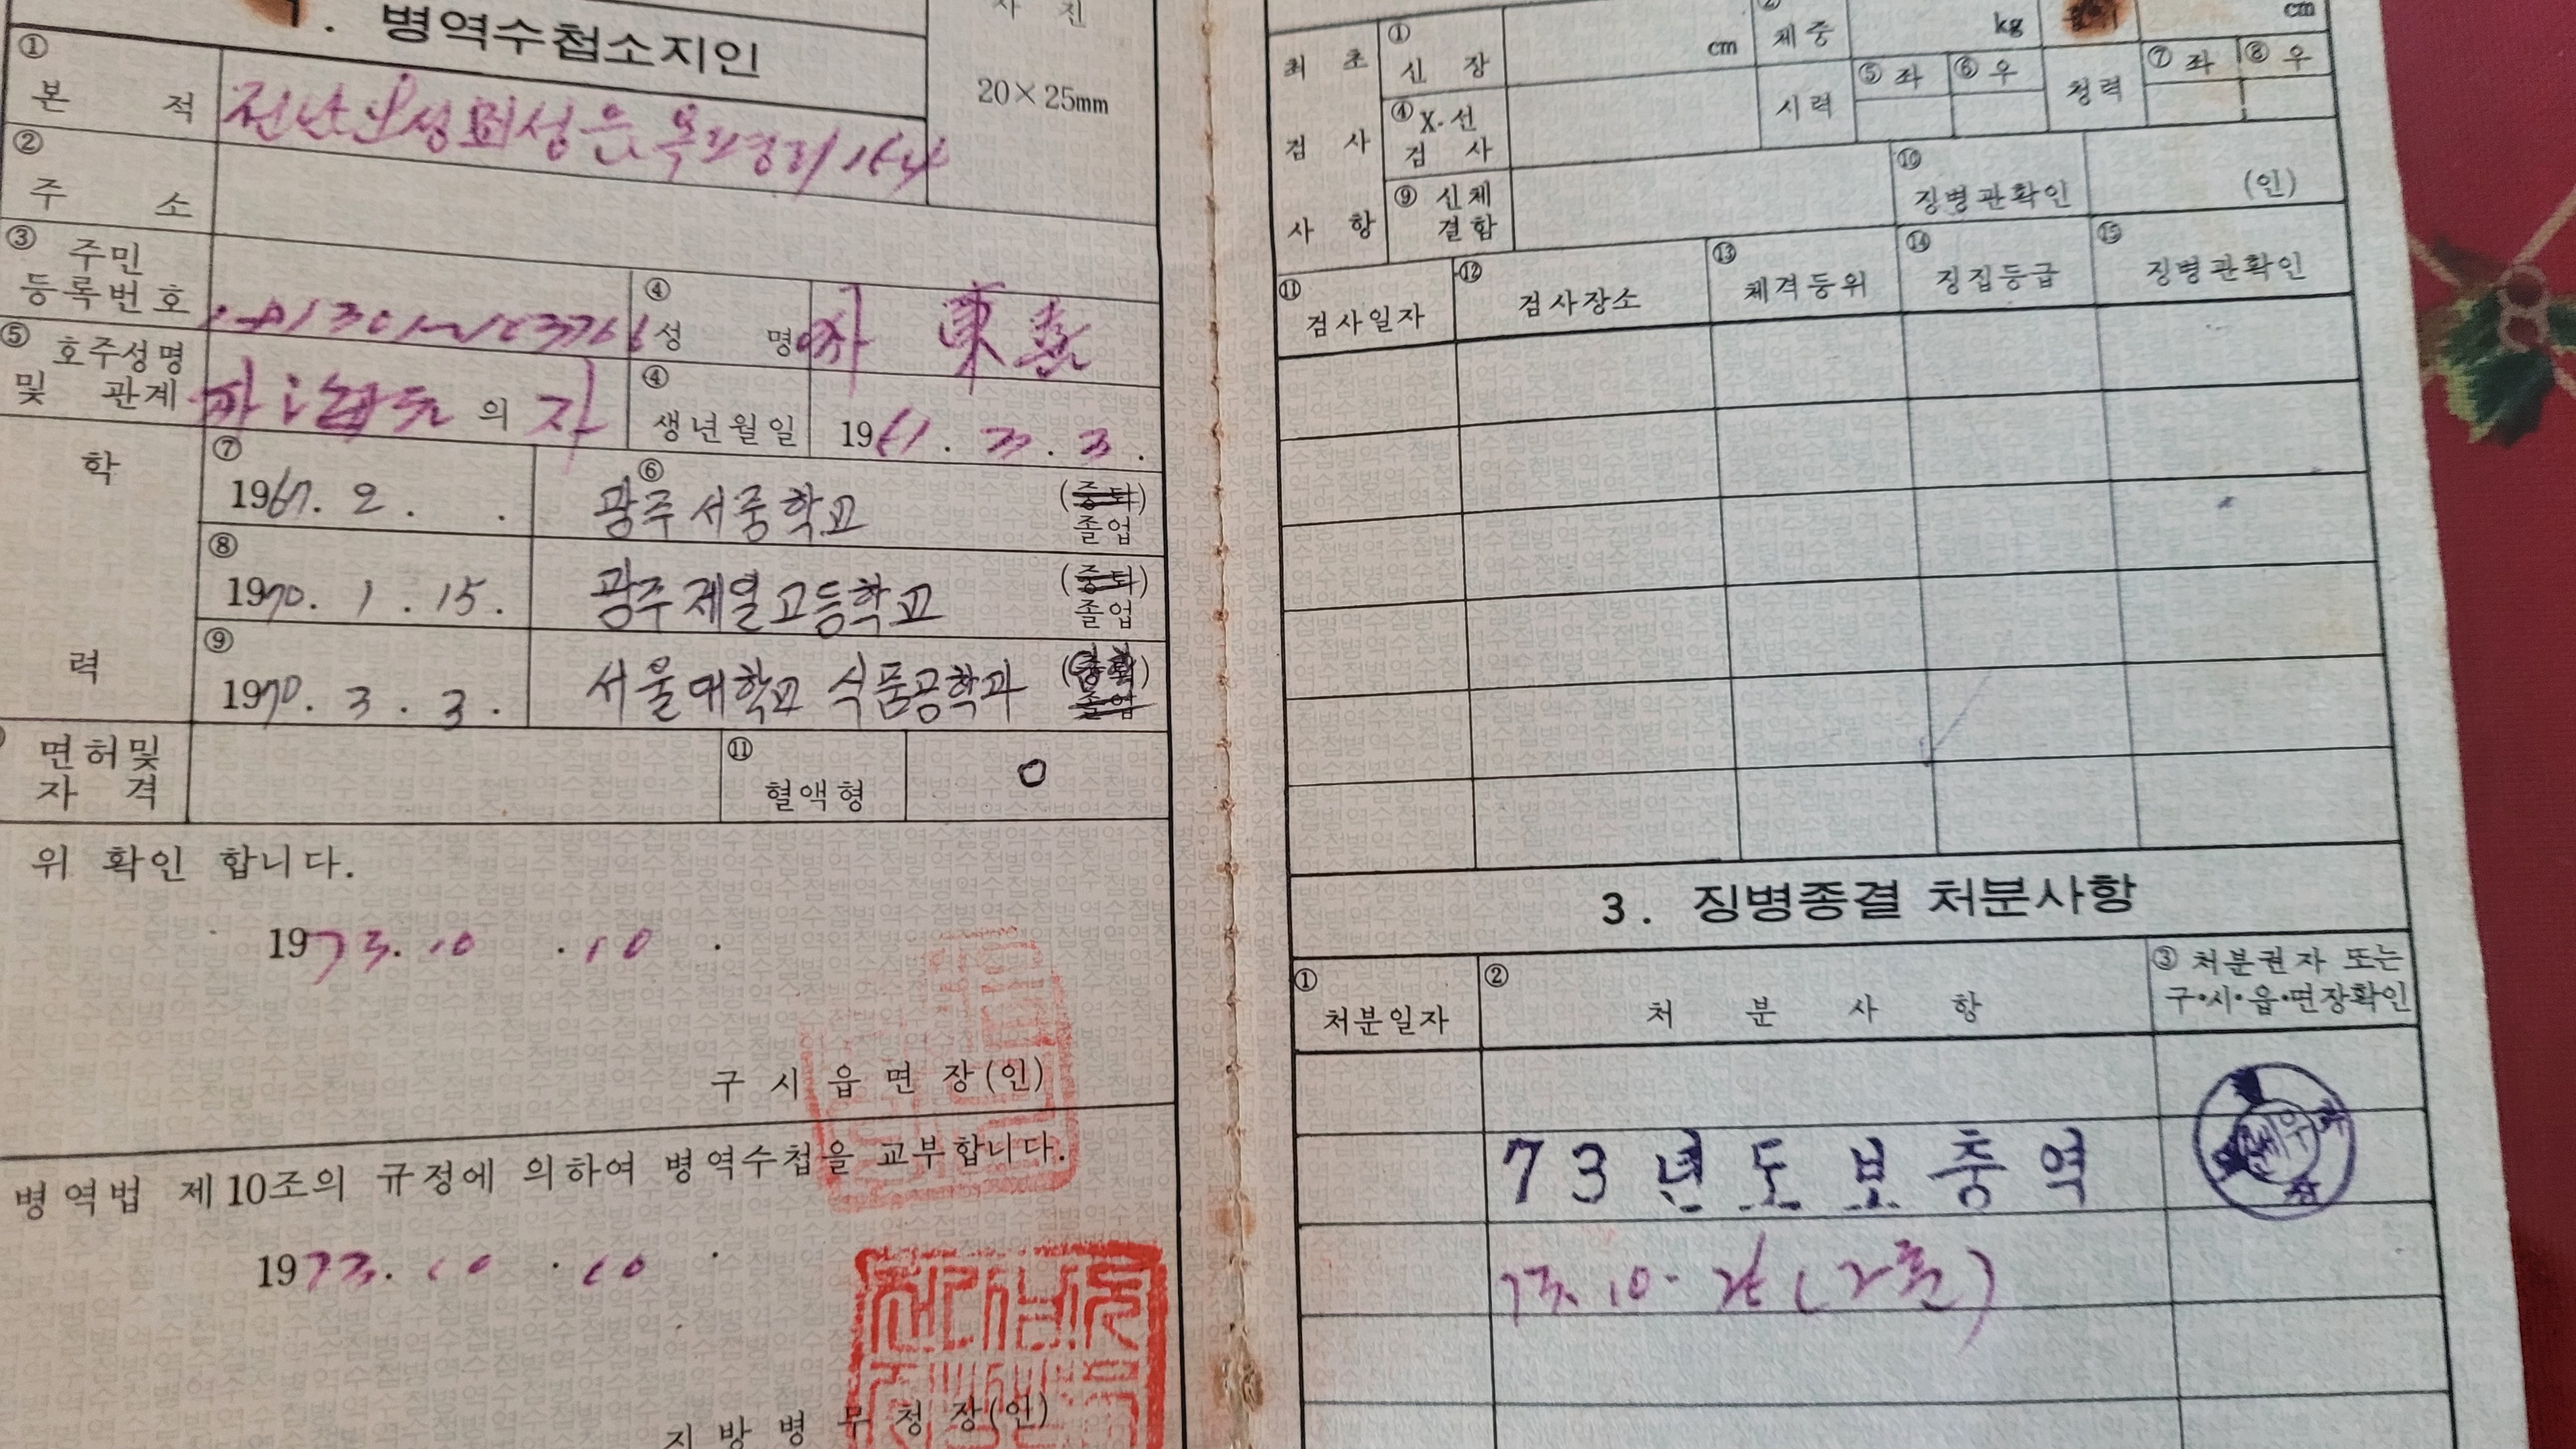 1. 병역수첩소지인
사 진
20×25mm
① 본 적 전난 보성
② 주 소
③ 주민등록번호
④ 성 명 東
⑤ 호주성명 및 관계 의 자
④ 생년월일 19
학 력
⑦ 1967. 2. . ⑥ 광주서중학교 (중퇴) 졸업
⑧ 1970. 1. 15. 광주제일고등학교 (중퇴) 졸업
⑨ 1970. 3. 3. 서울대학교 식품공학과 졸업
면허및 자 격
⑪ 혈액형 O
위 확인 합니다.
1973. 10 . 10 .
구 시 읍 면 장(인)
병역법 제10조의 규정에 의하여 병역수첩을 교부합니다.
1973. 10 . 10 .
지 방 병 무 청 장(인)
최 초 검 사 사 항
① 신 장 cm
② 체 중 kg
cm
④ X-선 검 사
시력 ⑤ 좌 ⑥ 우
청력 ⑦ 좌 ⑧ 우
⑨ 신체 결함
⑩ 징병관확인 (인)
⑪ 검사일자
⑫ 검사장소
⑬ 체격등위
⑭ 징집등급
⑮ 징병관확인
3. 징병종결 처분사항
① 처분일자
② 처 분 사 항
③ 처분권자 또는 구·시·읍·면장확인
73년도보충역
73. 10.